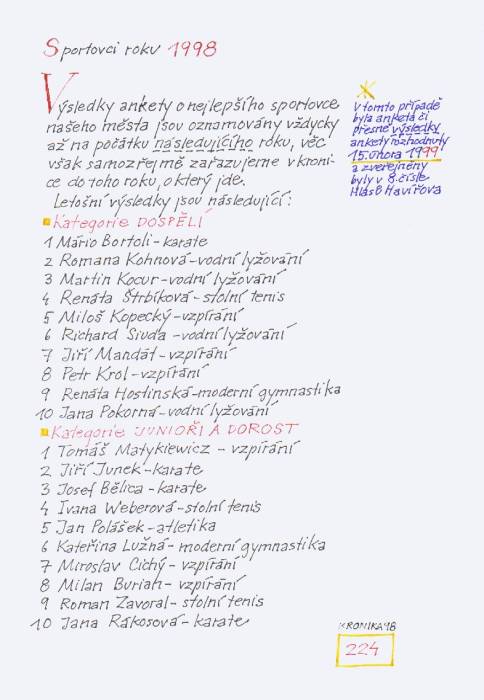 Sportovci roku 1998
Výsledky ankety o nejlepšího sportovce
našeho města jsou oznamovány vždycky
až na počátku následujícího roku, věc
však samozřejmě zařazujeme v kroni-
ce do toho roku, o který jde.
Letošní výsledky jsou následující:
V tomto případě
byla anketa či
přesně výsledky
ankety rozhodnuty
15. února 1999
a zveřejněny
byly v 8. čísle
Hlasů Havířova
Kategorie DOSPĚLÍ
1 Mário Bortoli - karate
2 Romana Kohnová - vodní lyžování
3 Martin Kocur - vodní lyžování
4 Renáta Štrbíková - stolní tenis
5 Miloš Kopecký - vzpírání
6 Richard Siuďa - vodní lyžování
7 Jiří Mandát - vzpírání
8 Petr Krol - vzpírání
9 Renáta Hostinská - moderní gymnastika
10 Jana Pokorná - vodní lyžování
Kategorie JUNIOŘI A DOROST
1 Tomáš Matykiewicz - vzpírání
2 Jiří Junek - karate
3 Josef Bělica - karate
4 Ivana Weberová - stolní tenis
5 Jan Polášek - atletika
6 Kateřina Lužná - moderní gymnastika
7 Miroslav Cichý - vzpírání
8 Milan Burian - vzpírání
9 Roman Zavoral - stolní tenis
10 Jana Rákosová - karate
KRONIKA'98
224